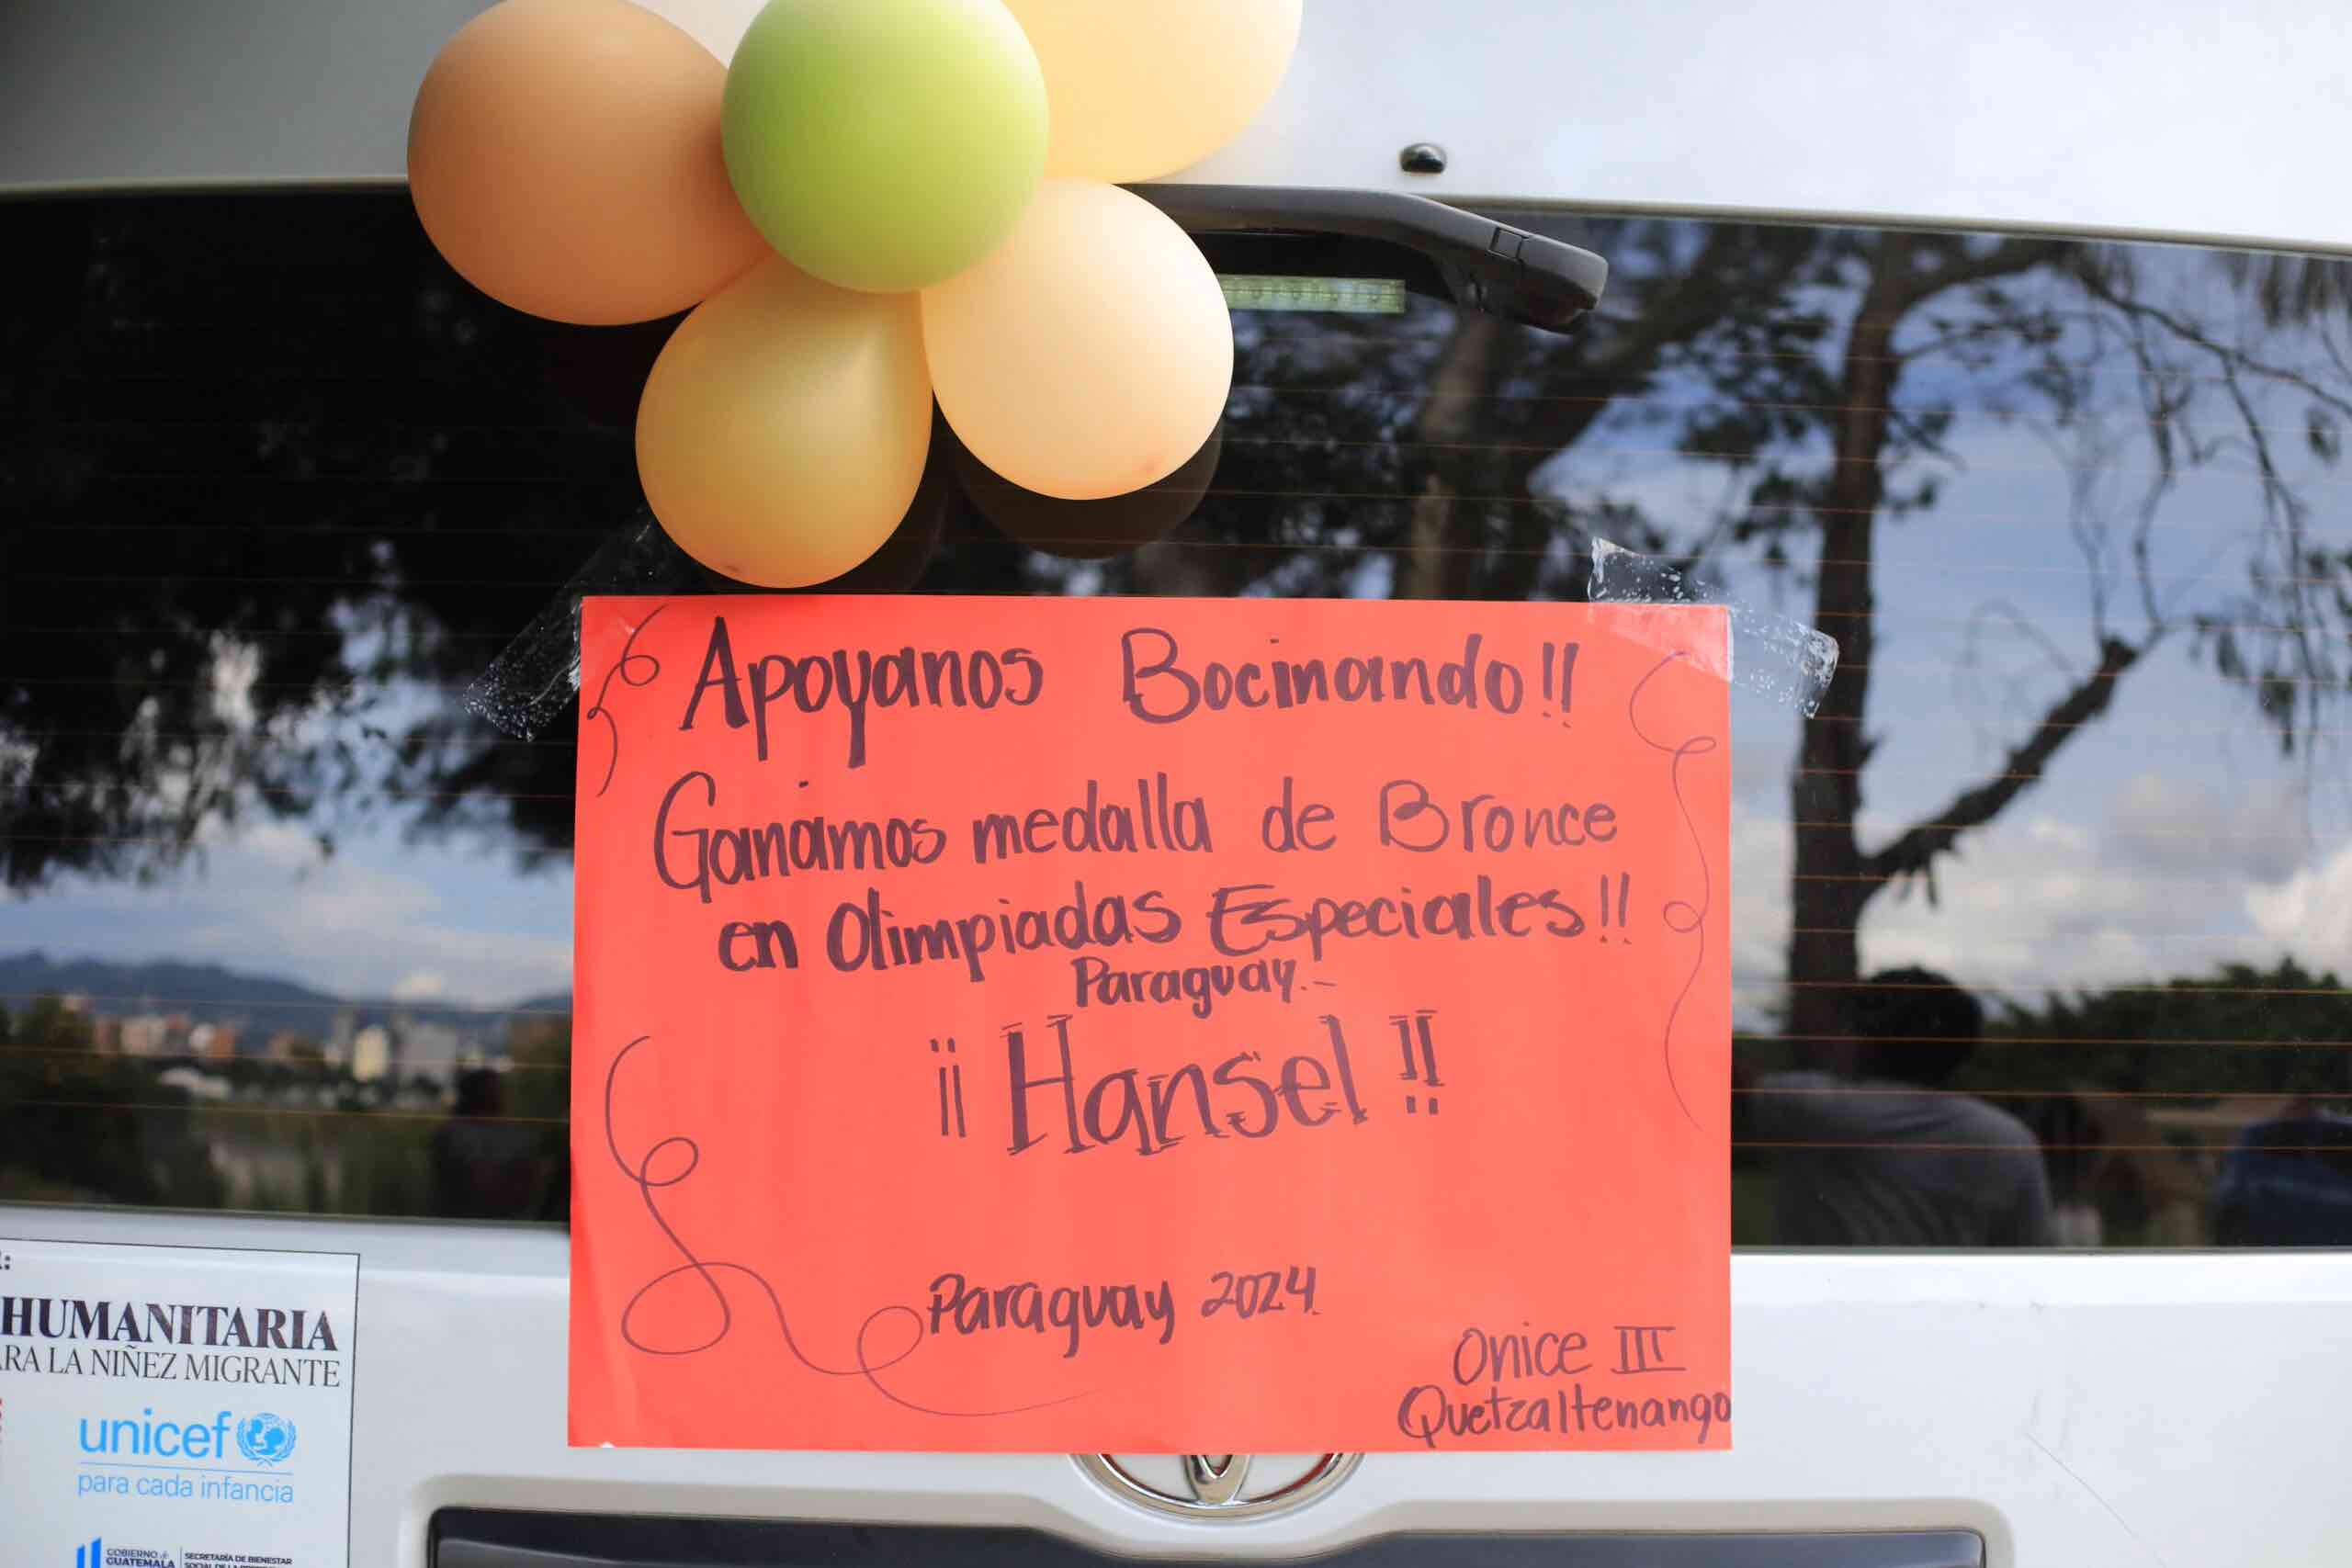 Apoyanos Bocinando!!
Ganamos medalla de Bronce
en Olimpiadas Especiales!!
Paraguay.-
¡¡Hansel!!
Paraguay 2024.
Onice III
Quetzaltenango
HUMANITARIA
RA LA NIÑEZ MIGRANTE
unicef
para cada infancia
GOBIERNO de
GUATEMALA
SECRETARÍA DE BIENESTAR
SOCIAL DE LA